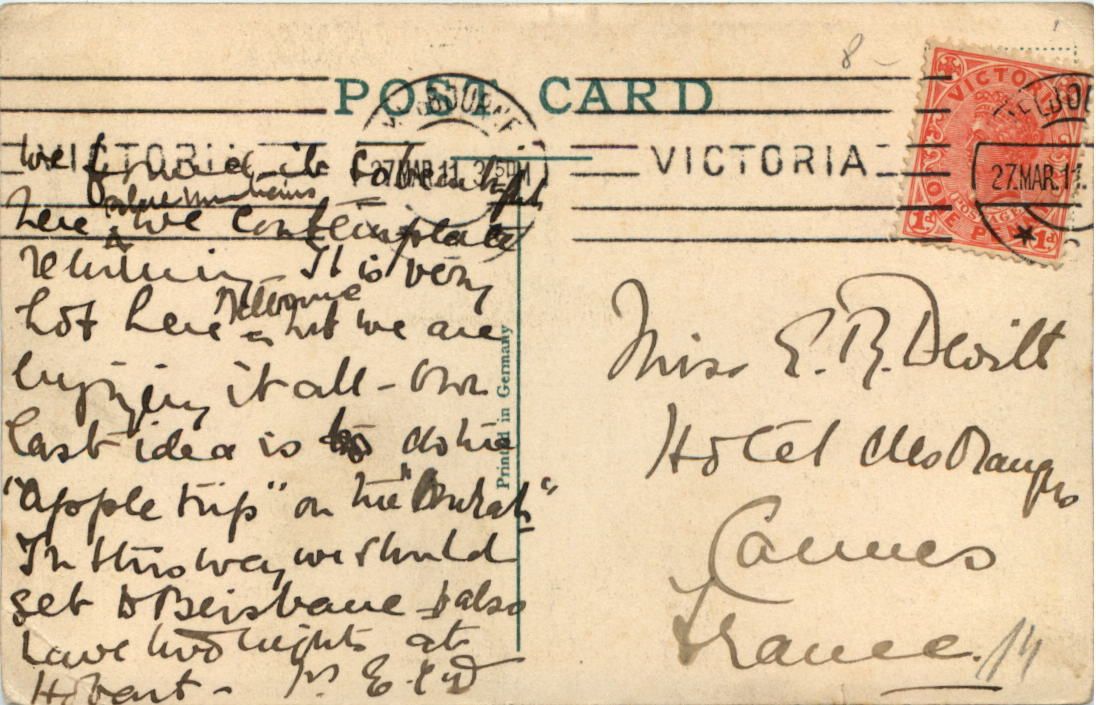 POST CARD
VICTORIA
MELBOURNE
27 MAR. 11
VICTORIA
MELBOU
27. MAR. 11.
VICTORIA
POSTAGE
1d ONE PENNY 1d
8
we found it so
here Blue Mountains we contemplate
returning. It is very
hot here Melbourne but we are
enjoying it all - our
last idea is to do the
"apple trip" on the
In this way we should
get to Brisbane & also
have two nights at
Hobart -
Printed in Germany
Miss E. R. Dewitt
Hotel des Oranges
Cannes
France.